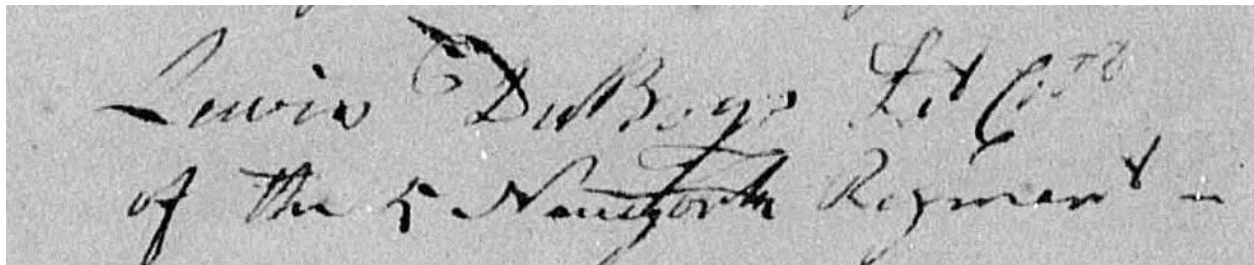 Lewis DuBoys Lt Coll
of the 5 Newyork Regment